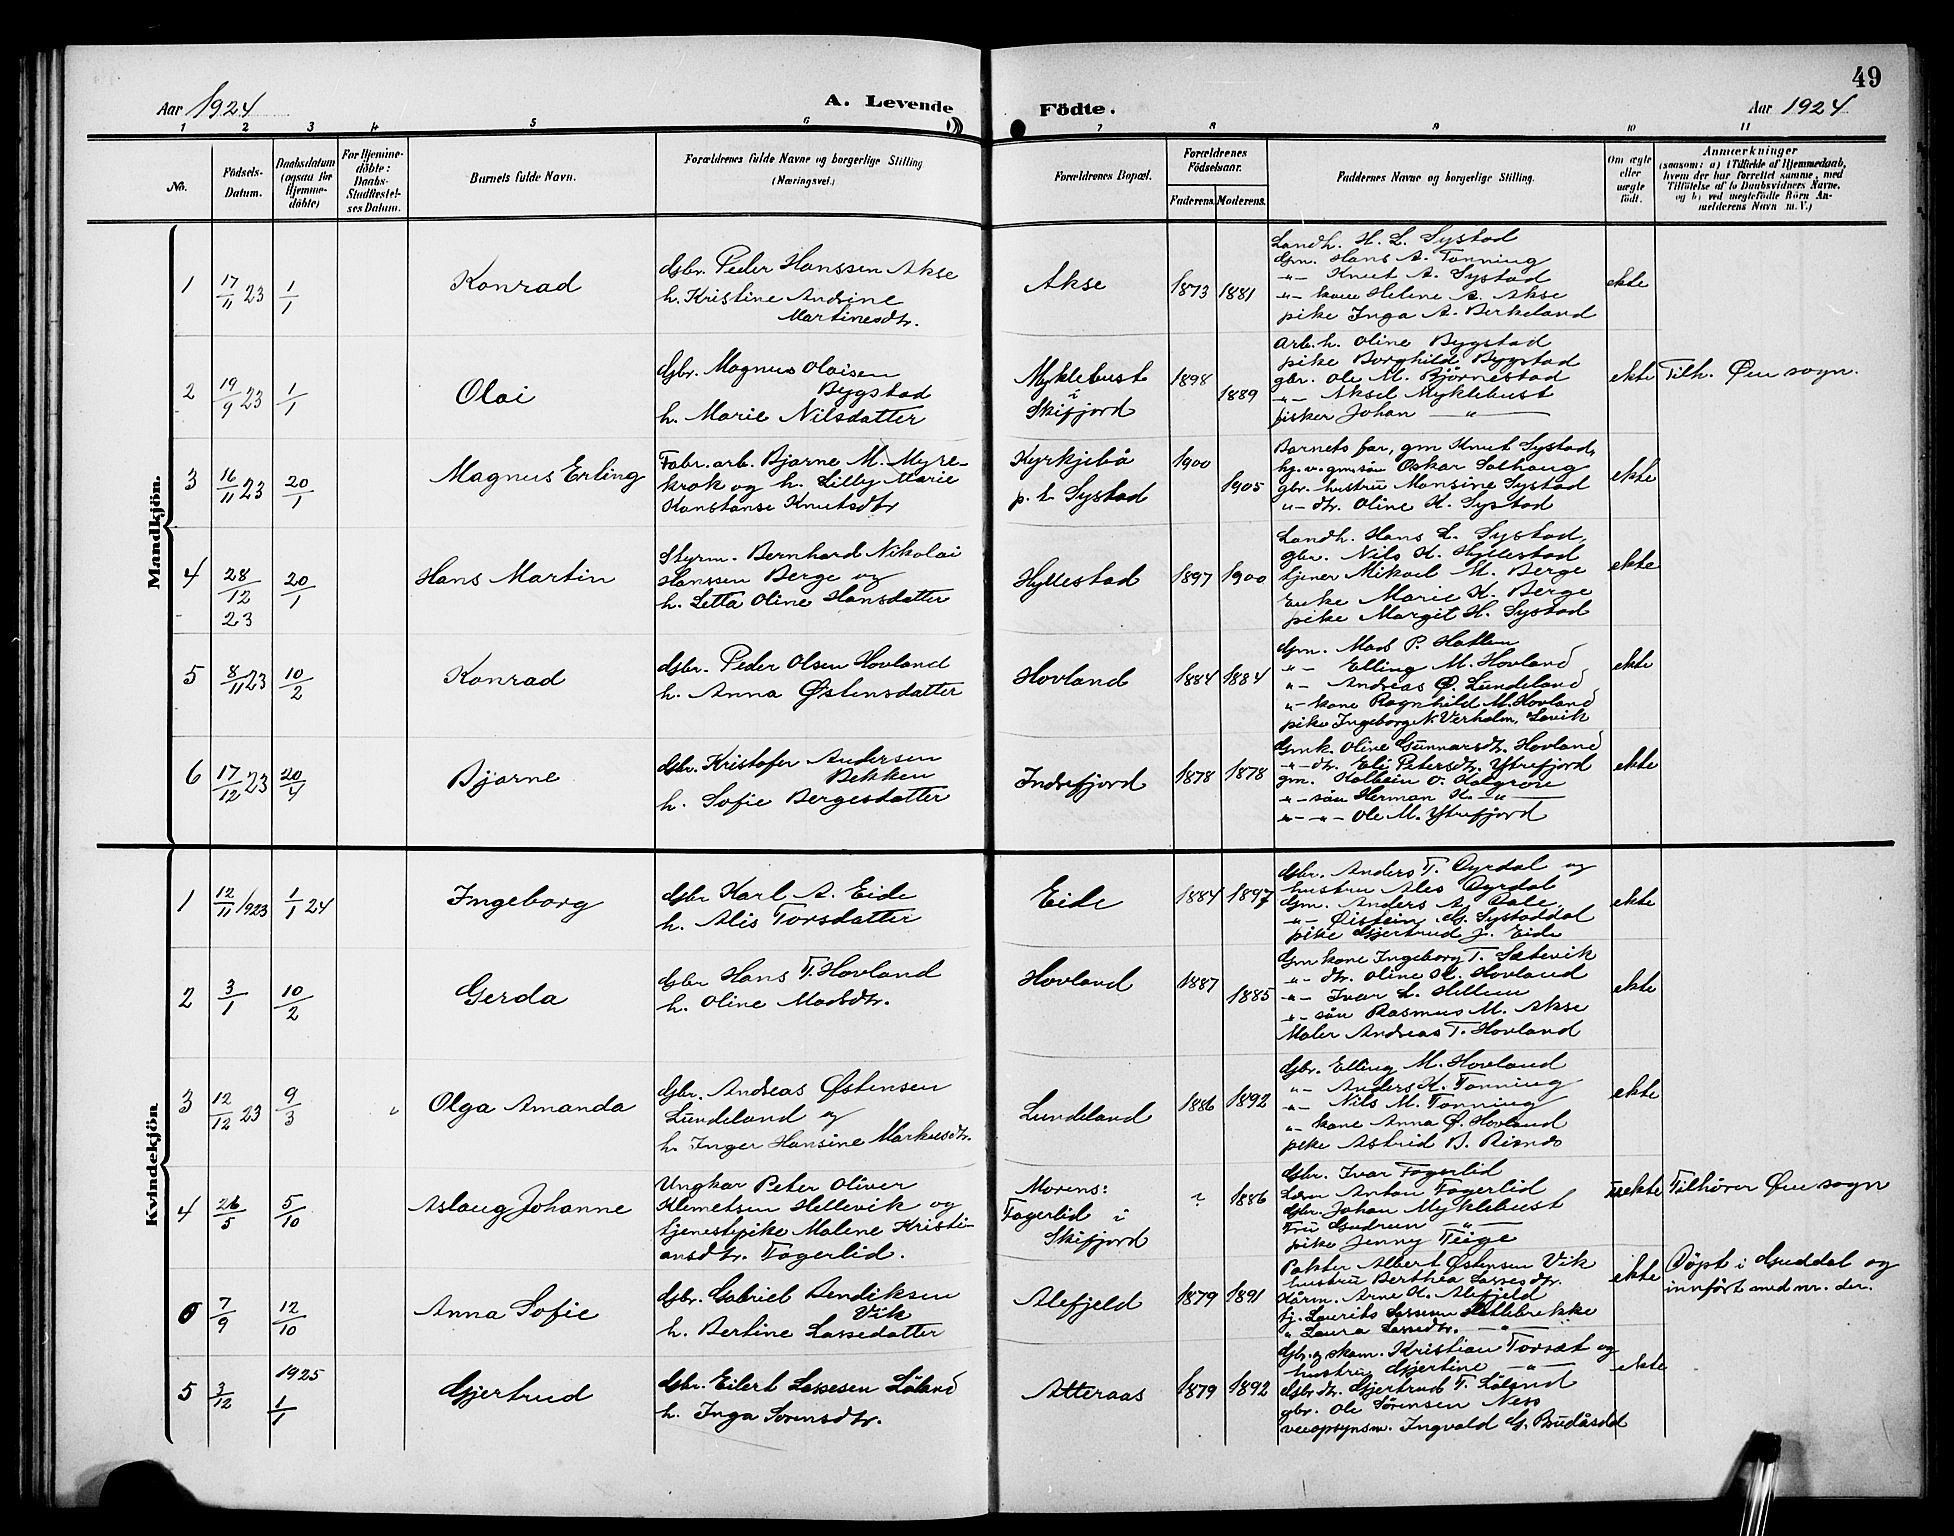 49
Aar 1924
A. Levende Födte.
Aar 1924
1 2 3 4 5 6 7 8 9 10 11
No.
Födsels-Datum.
Daabsdatum (ogsaa for Hjemme-döbte)
For Hjemme-döbte: Daabs-Stadfæstel-ses Datum.
Barnets fulde Navn.
Forældrenes fulde Navne og borgerlige Stilling (Næringsvei.)
Forældrenes Bopæl.
Forældrenes Födselsaar.
Faderens. Moderens.
Faddernes Navne og borgerlige Stilling.
Om ægte eller uægte födt.
Anmærkninger
(saasom: a) i Tilfælde af Hjemmedaab,
hvem der har forrettet samme, med
Tilföielse af to Daabsvidners Navne,
og b) ved uægtefödte Börn An-
mælderens Navn m. V.)
Mandkjön.
1 17/11 23 1/1 Konrad
Gbr. Peder Hanssen Akse
h. Kristine Andrine
Martinesdtr.
Akse 1873 1881
Landh. H. L. Systad
Gm. Hans A. Tonning
"- Knut A. Systad
"- kone Helene A. Akse
pike Inga A. Berkeland
ekte
2 19/9 23 1/1 Olai
Gbr. Magnus Olaisen
Bygstad
h. Marie Nilsdatter
Myklebust
i
Skifjord
1898 1889
Arb. h. Oline Bygstad
pike Borghild Bygstad
gbr. Ole M. Björnestad
"- Aksel Myklebust
fisker Johan "
ekte Tilh. Øen sogn.
3 16/11 23 20/1 Magnus Erling
Fabr. arb. Bjarne M. Myre-
krok og h. Lilly Marie
Konstanse Knutsdtr
Kyrkjebö
p. t. Systad
1900 1905
Barnets far, gm Knut Systad,
hj. v. gm. sön Oskar Solhaug
gbr. hustru Monsine Systad
"- dtr. Oline K. Systad
ekte
4 28/12 23 20/1 Hans Martin
Styrm. Bernhard Nikolai
Hanssen Berge og
h. Letta Oline Hansdatter
Hyllestad 1897 1900
Landh. Hans L. Systad,
gbr. Nils H. Hyllestad
tjener Mikael M. Berge
Enke Marie H. Berge
pike Margit H. Systad
ekte
5 8/11 23 10/2 Konrad
Gbr. Peder Olsen Hovland
h. Anna Østensdatter
Hovland 1884 1884
Gm. Mads P. Hatlem
"- Elling M. Hovland
"- Andreas Ø. Lundeland
"- kone Ragnhild M. Hovland
pike Ingeborg N. Verholm, Lavik
ekte
6 17/12 23 20/4 Bjarne
Gbr. Kristofer Andersen
Bekken
h. Sofie Bergesdatter
Indrefjord 1878 1878
Gmk. Oline Gunnarsdtr. Hovland
"- dtr. Eli Petersdtr. Ytrefjord
gm. Kolbein O. Kolgrov
"- sön Herman K. "
"- "- Ole M. Ytrefjord
ekte
Kvindekjön
1 12/11 1923 1/1 24 Ingeborg
Gbr Karl A. Eide
h. Alis Torsdatter
Eide 1884 1897
Gbr. Anders T. Dyrdal og
hustru Ales Dyrdal
Gm. Anders A. Dale,
"- Øistein G. Systaddal
pike Gjertrud J. Eide
ekte
2 3/1 10/2 Gerda
Gbr Hans T. Hovland
h. Oline Madsdtr.
Hovland 1887 1885
Gm kone Ingeborg T. Sætevik
"- dtr. Oline H. Hovland
"- Ivar L. Hellem
"- sön Rasmus M. Akse
Maler Andreas T. Hovland
ekte
3 12/12 23 9/3 Olga Amanda
Gbr. Andreas Østensen
Lundeland og
h. Inger Hansine Markusdtr.
Lundeland 1886 1892
Gbr. Elling M. Hovland
"- Anders H. Tonning
"- Nils M. Tonning
"- kone Anna Ø. Hovland
pike Astrid B. Risnes
ekte
4 26/5 5/10 Aslaug Johanne
Ungkar Peter Oliver
Klemetsen Hellevik og
tjenestepike Malene Kristi-
ansdtr. Fagerlid.
Morens:
Fagerlid i
Skifjord
? 1886
Gbr. Ivar Fagerlid
Anton Fagerlid
Gbr. Johan Myklebust
Fru Gudrun "
pike Jenny Teige
uekte Tilhører Øen sogn
0 7/9 12/10 Anna Sofie
Gbr. Gabriel Bendiksen
Vik
h. Bertine Lassedatter
Alefjeld 1879 1891
Pakter Albert Østensen Vik
hustru Berthea Lassesdtr.
Arne H. Alefjeld
tj. Laurits Lassesen Slettebrekke
" Laura Lassedtr. "
ekte Döpt i Guddal og
innfört med nr. der.
5 3/12 1925 1/1 Gjertrud
Gbr. Eilert Lassesen Löland
h. Inga Sorensdtr.
Atteraas 1879 1892
Gbr. og skom. Kristian Torsæt og
hustru Gjertine "
Gbr dtr. Gjertrud T. Löland
gbr. Ole Sørensen Ness
veiopsynsm. Ingvald G. Budåsdal
ekte